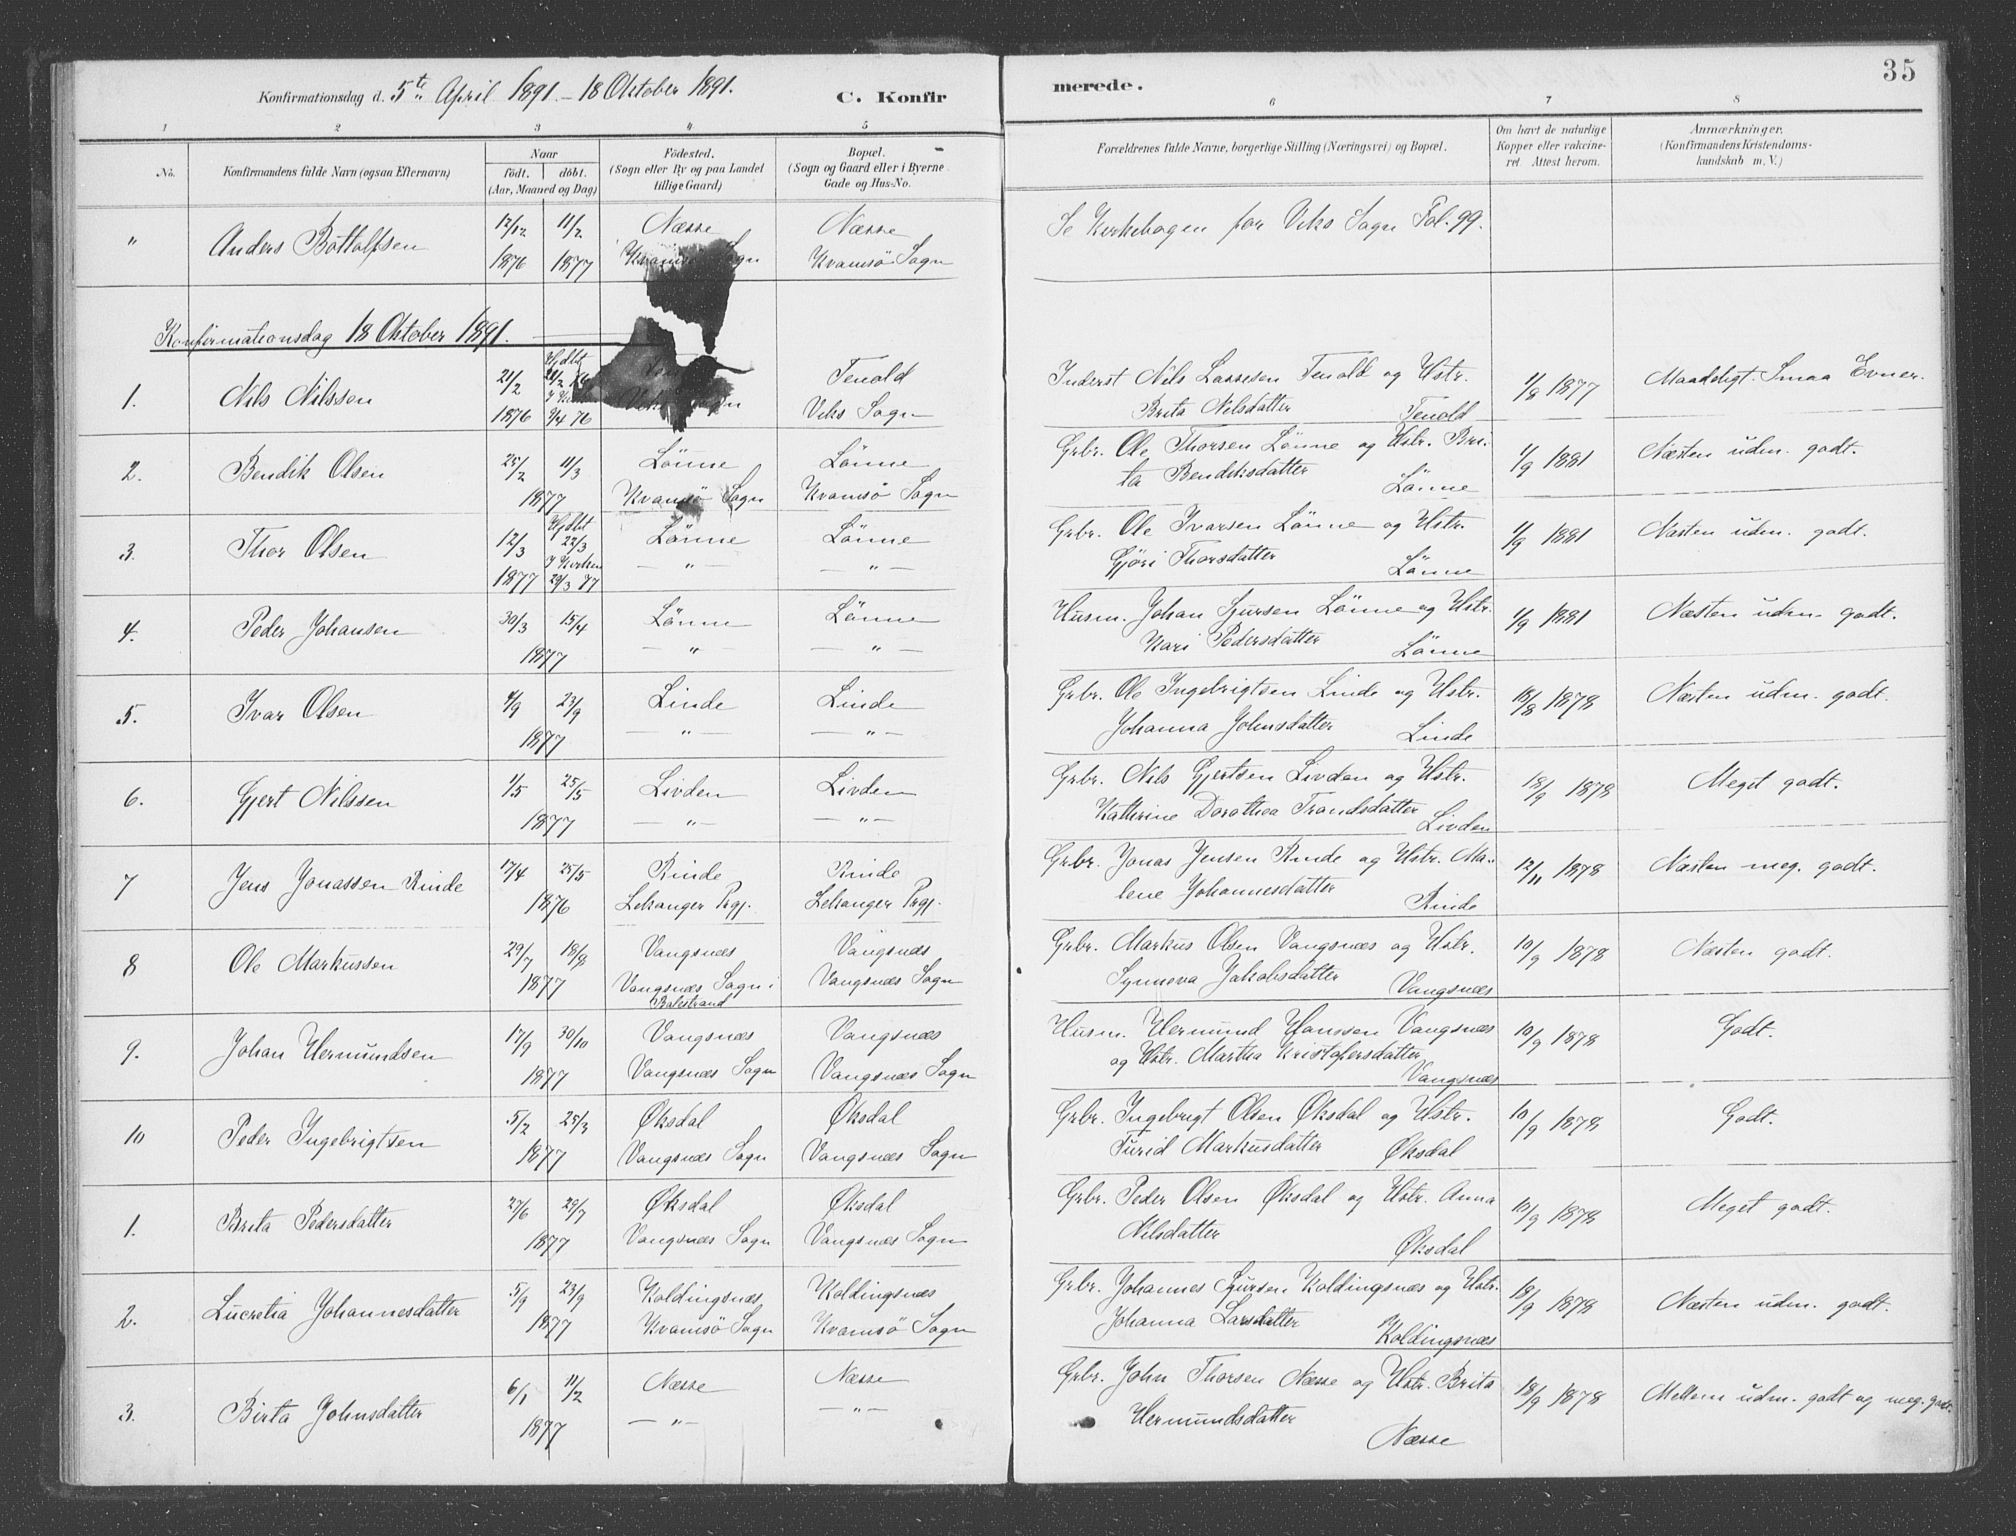 35
Konfirmationsdag d. 5te April 1891. - 18 Oktober 1891.
C. Konfir
merede.
1 2 3 4 5 6 7 8
No.
Konfirmandens fulde Navn (ogsaa Efternavn)
Naar
födt. döbt.
(Aar, Maaned og Dag)
Födested.
(Sogn eller By og paa Landet
tillige Gaard)
Bopæl.
(Sogn og Gaard eller i Byerne
Gade og Hus-No.
Forældrenes fulde Navne, borgerlige Stilling (Næringsvei) og Bopæl.
Om havt de naturlige
Kopper eller vakcine-
ret. Attest herom.
Anmærkninger.
(Konfirmandens Kristendoms-
kundskab m. V.)
" Anders Bottolfsen 12/12 11/2 Næsse Næsse Se Kirkebogen for Viks Sogn Fol. 99.
1876 1877 Kvamsö Sogn Kvamsö Sogn
Konfirmationsdag 18 Oktober 1891.
1. Nils Nilssen 21/2 Hjdbt Tenold Inderst Nils Lassesen Tenold og Hstr. 1/8 1877 Maadeligt. Smaa Evner.
1876 9/4 76 Viks Sogn Brita Nilsdatter Tenold
2. Bendik Olsen 25/2 11/3 Lönne Lönne Grbr. Ole Thorsen Lönne og Hstr. Bri- 1/9 1881 Næsten udm. godt.
1877 Kvamsö Sogn Kvamsö Sogn ta Bendiksdatter Lönne
3. Thor Olsen 12/3 Hjdbt 22/3 Lönne Lönne Grbr. Ole Ivarsen Lönne og Hstr. 1/9 1881 Næsten udm. godt.
1877 I Kirken 29/3 77 — " — — " — Gjöri Thorsdatter Lönne
4. Peder Johansen 30/3 15/4 Lönne Lönne Husm. Johan Sjursen Lönne og Hstr. 1/9 1881 Næsten udm. godt.
1877 — " — — " — Kari Pedersdatter Lönne
5. Ivar Olsen 4/9 23/9 Linde Linde Grbr. Ole Ingebrigtsen Linde og Hstr. 18/8 1878 Næsten udm. godt.
1877 — " — — " — Johanna Johnsdatter Linde
6. Gjert Nilssen 1/5 25/5 Livden Livden Grbr. Nils Gjertsen Livden og Hstr. 18/9 1878 Meget godt.
1877 — " — — " — Kathrine Dorothea Trondsdatter Livden
7 Jens Jonassen Rinde 17/4 25/5 Rinde Rinde Grbr. Jonas Jensen Rinde og Hstr. Ma- 12/11 1878 Næsten meg. godt.
1876 Lekanger Prgj. Lekanger Prgj. lene Johannesdatter Rinde
8 Ole Markussen 29/7 18/8 Vangsnæs Vangsnæs Grbr. Markus Olsen Vangsnæs og Hstr. 10/9 1878 Næsten godt.
1877 Vangsnæs Sogn i Vangsnæs Sogn Synneva Jakobsdatter Vangsnæs
Balestrand
9. Johan Hermundsen 17/9 30/10 Vangsnæs Vangsnæs Husm. Hermund Hanssen Vangsnæs 10/9 1878 Godt.
1877 Vangsnæs Sogn Vangsnæs Sogn og Hstr. Martha Kristofersdatter Vangsnæs
10 Peder Ingebrigtsen 5/2 25/3 Øksdal Øksdal Grbr. Ingebrigt Olsen Øksdal og Hstr. 10/9 1878 Godt.
1877 Vangsnæs Sogn Vangsnæs Sogn Turid Markusdatter Øksdal
1. Brita Pedersdatter 27/6 29/7 Øksdal Øksdal Grbr. Peder Olsen Øksdal og Hstr. Anna 10/9 1878 Meget godt.
1877 Vangsnæs Sogn Vangsnæs Sogn Nilsdatter Øksdal
2. Lucretia Johannesdatter 5/9 23/9 Koldingsnæs Koldingsnæs Grbr. Johannes Sjursen Koldingsnæs og Hstr. 18/9 1878 Næsten udm. godt.
1877 Kvamsö Sogn Kvamsö Sogn Johanna Larsdatter Koldingsnæs
3. Birta Johnsdatter 6/1 11/2 Næsse Næsse Grbr. John Thorsen Næsse og Hstr. Brita 18/9 1878 Mellem udm. godt og meg. godt.
1877 — " — — " — Hermundsdatter Næsse